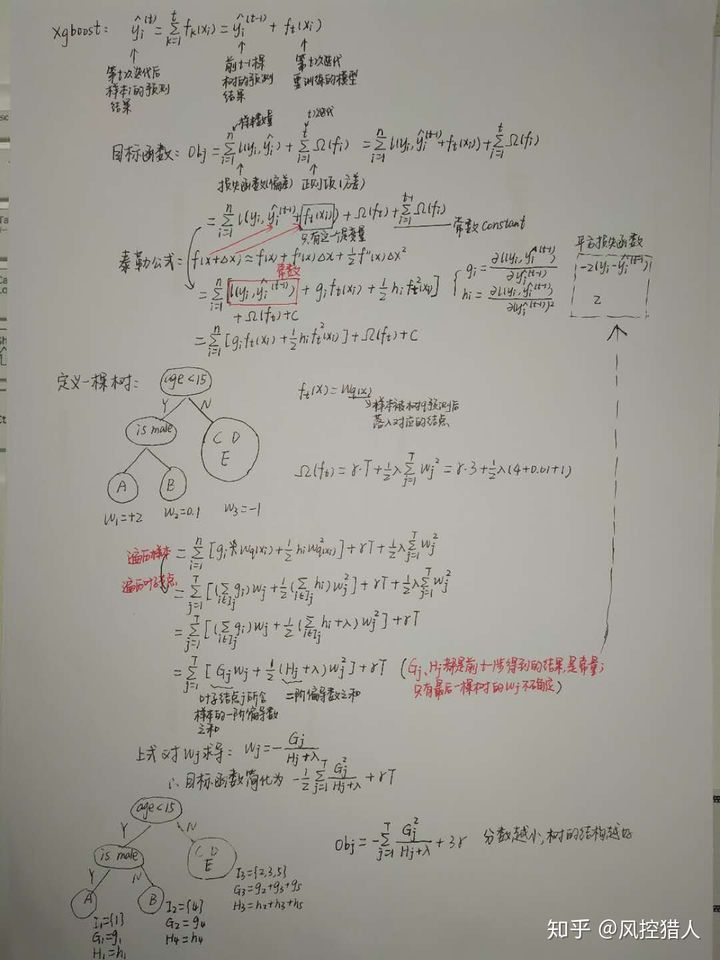 Xgboost: ŷᵢ⁽ᵗ⁾ = Σₖ₌₁ᵗ fₖ(xᵢ) = ŷᵢ⁽ᵗ⁻¹⁾ + fₜ(xᵢ)
第t次迭代后样本i的预测结果
前t-1棵树的预测结果
第t次迭代要训练的模型
样本数量 t次迭代
目标函数: Obj = Σᵢ₌₁ⁿ l(yᵢ, ŷᵢ) + Σᵢ₌₁ᵗ Ω(fᵢ) = Σᵢ₌₁ⁿ l(yᵢ, ŷᵢ⁽ᵗ⁻¹⁾ + fₜ(xᵢ)) + Σᵢ₌₁ᵗ Ω(fᵢ)
损失函数(偏差) 正则项(方差)
= Σᵢ₌₁ⁿ l(yᵢ, ŷᵢ⁽ᵗ⁻¹⁾ + fₜ(xᵢ)) + Ω(fₜ) + Σᵢ₌₁ᵗ⁻¹ Ω(fᵢ) 常数 constant
只有这一项变量
泰勒公式: f(x+Δx) ≈ f(x) + f'(x)Δx + ½f''(x)Δx²
常数
= Σᵢ₌₁ⁿ [l(yᵢ, ŷᵢ⁽ᵗ⁻¹⁾) + gᵢfₜ(xᵢ) + ½hᵢfₜ²(xᵢ)]
+ Ω(fₜ) + C
gᵢ = ∂l(yᵢ, ŷᵢ⁽ᵗ⁻¹⁾)/∂ŷᵢ⁽ᵗ⁻¹⁾
hᵢ = ∂l(yᵢ, ŷᵢ⁽ᵗ⁻¹⁾)/∂(ŷᵢ⁽ᵗ⁻¹⁾)²
平方损失函数
-2(yᵢ - ŷᵢ⁽ᵗ⁻¹⁾)
2
= Σᵢ₌₁ⁿ [gᵢfₜ(xᵢ) + ½hᵢfₜ²(xᵢ)] + Ω(fₜ) + C
定义一棵树:
age<15
Y N
is male
C D
E
A B
W₁=+2 W₂=0.1 W₃=-1
fₜ(x) = Wq(x)
样本被树预测后
落入对应的结点
Ω(fₜ) = γ·T + ½λΣⱼ₌₁ᵀ Wⱼ² = γ·3 + ½λ(4+0.01+1)
遍历样本
= Σᵢ₌₁ⁿ [gᵢWq(xᵢ) + ½hᵢW²q(xᵢ)] + γT + ½λΣⱼ₌₁ᵀ Wⱼ²
遍历叶子结点
= Σⱼ₌₁ᵀ [(Σᵢ∈Iⱼ gᵢ)Wⱼ + ½(Σᵢ∈Iⱼ hᵢ)Wⱼ²] + γT + ½λΣⱼ₌₁ᵀ Wⱼ²
= Σⱼ₌₁ᵀ [(Σᵢ∈Iⱼ gᵢ)Wⱼ + ½(Σᵢ∈Iⱼ hᵢ + λ)Wⱼ²] + γT
= Σⱼ₌₁ᵀ [GⱼWⱼ + ½(Hⱼ+λ)Wⱼ²] + γT
(Gⱼ、Hⱼ都是前t-1步得到的结果,是常量;
只有最后一棵树的Wⱼ不确定)
叶子结点j所含
样本的一阶偏导数
之和
二阶偏导数之和
上式对Wⱼ求导: Wⱼ = -Gⱼ/(Hⱼ+λ)
∴目标函数简化为 -½Σⱼ₌₁ᵀ Gⱼ²/(Hⱼ+λ) + γT
age<15
Y N
is male
C D
E
Y N
A B
I₁={1}
G₁=g₁
H₁=h₁
I₂={4}
G₂=g₄
H₄=h₄
I₃={2,3,5}
G₃=g₂+g₃+g₅
H₃=h₂+h₃+h₅
Obj = -Σⱼ₌₁ᵀ Gⱼ²/(Hⱼ+λ) + 3γ 分数越小,树的结构越好
知乎 @风控猎人